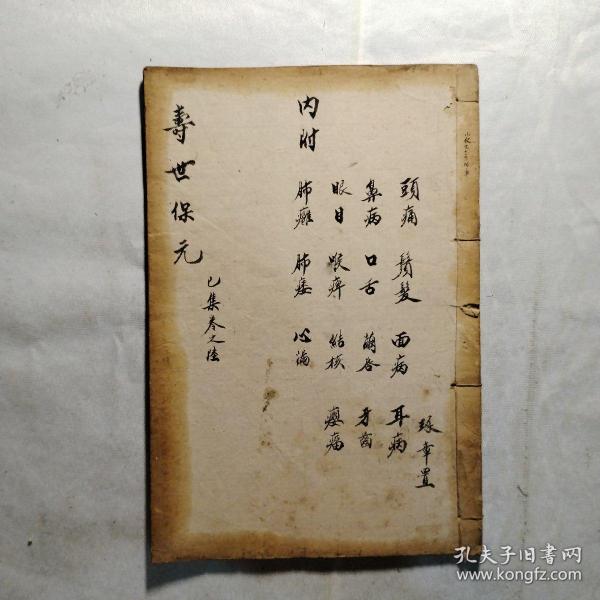 琢章置
頭痛 鬚髮 面病 耳病
鼻病 口舌 繭唇 牙齒
眼目 喉痺 結核 癭瘤
肺癰 肺痿 心痛
內附
己集卷之陸
壽世保元
孔夫子旧书网
www.kongfz.com